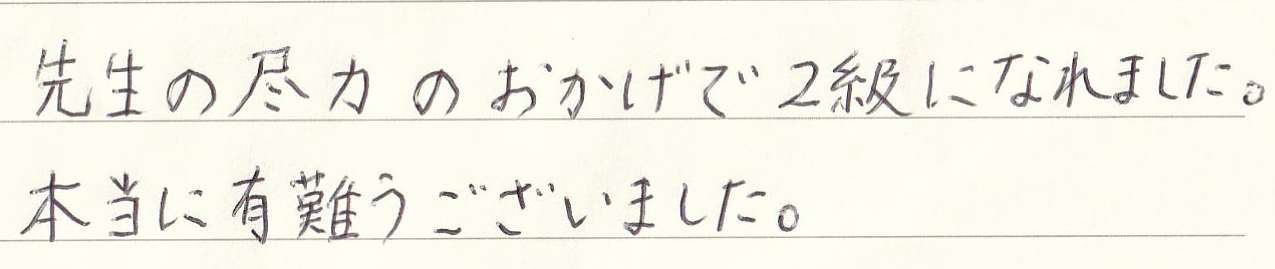 先生の尽力のおかげで2級になれました。
本当に有難うございました。